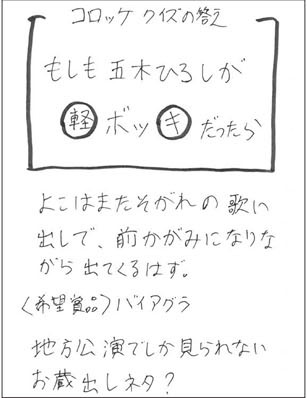 コロッケ クイズの答え
もしも 五木ひろしが
軽 ボッ キ だったら
よこはまたそがれの 歌い
出しで、前かがみになりな
がら 出てくるはず。
〈希望賞品〉バイアグラ
地方公演でしか見られない
お蔵出しネタ?